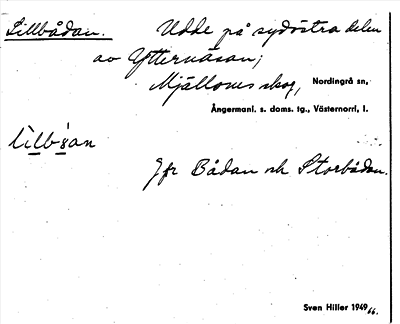 Lillbådan. Udde på sydöstra delen
av Ytternäsan;
Mjälloms skog, Nordingrå sn,
Ångermanl. s. doms. tg., Västernorrl. l.
Jfr Bådan och Storbådan.
Sven Hiller 1949